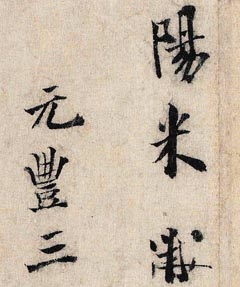 陽米黻
元豐三